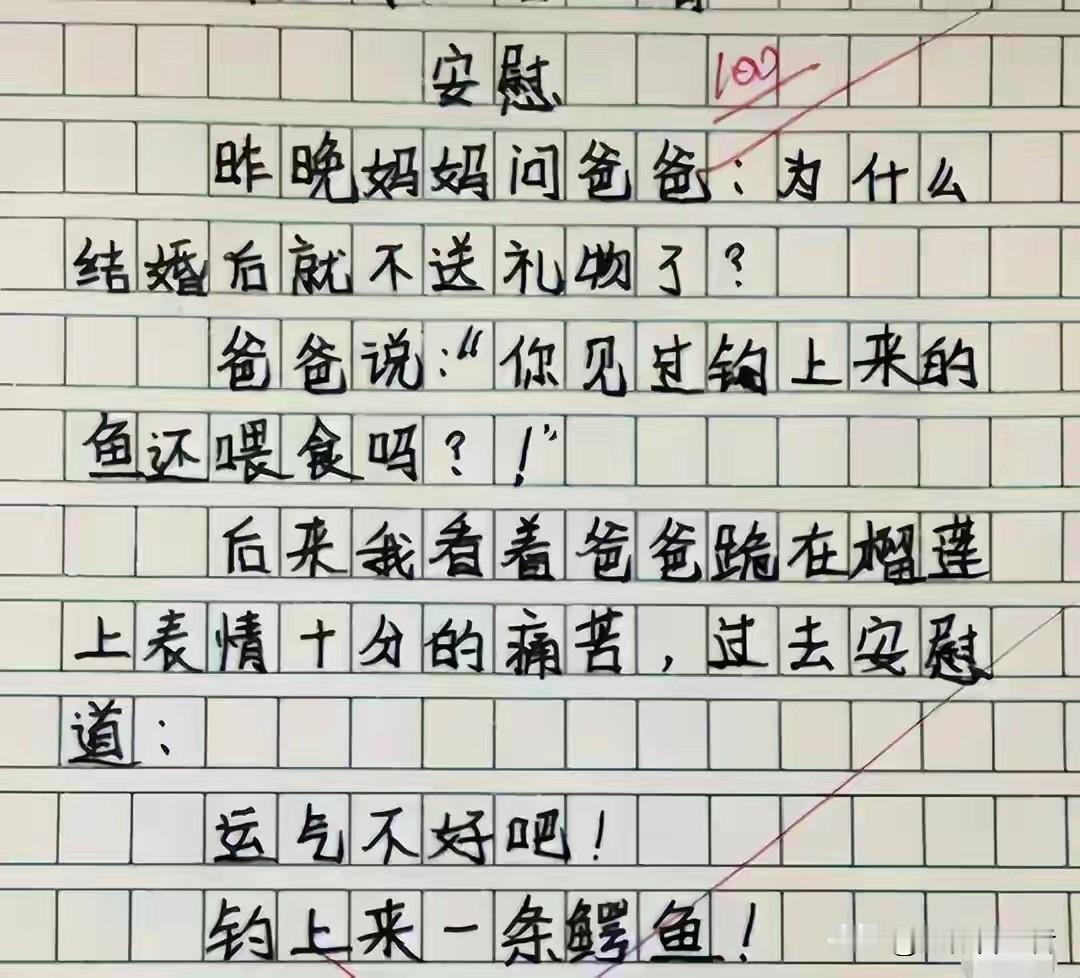 安慰 100
昨晚妈妈问爸爸：为什么
结婚后就不送礼物了？
爸爸说：“你见过钓上来的
鱼还喂食吗？！”
后来我看着爸爸跪在榴莲
上表情十分的痛苦，过去安慰
道：
运气不好吧！
钓上来一条鳄鱼！